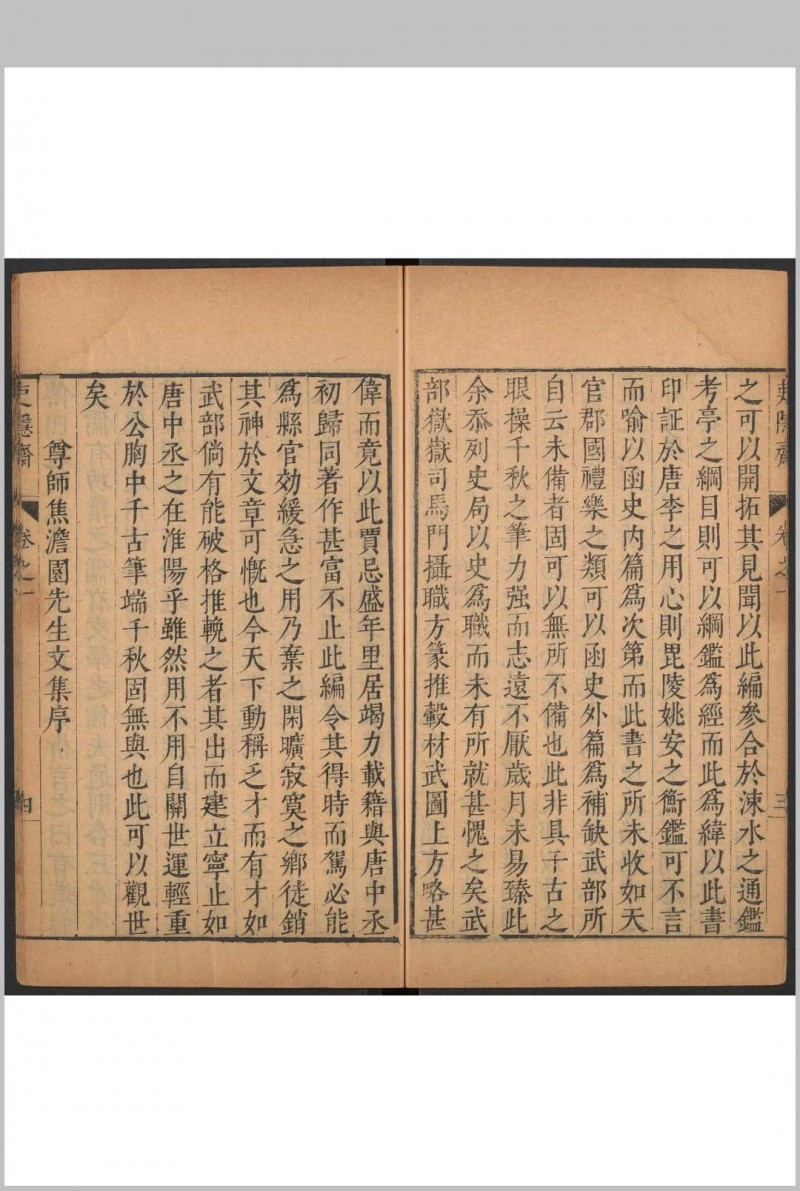 之可以開拓其見聞以此編參合於涑水之通鑑
考亭之綱目則可以綱鑑爲經而此爲緯以此書
印証於唐李之用心則毘陵姚安之衡鑑可不言
而喻以函史內篇爲次第而此書之所未收如天
官郡國禮樂之類可以函史外篇爲補缺武部所
自云未備者固可以無所不備也此非具千古之
眼操千秋之筆力强而志遠不厭歲月未易臻此
余忝列史局以史爲職而未有所就甚愧之矣武
部嶽嶽司馬門攝職方篆推轂材武圖上方略甚
偉而竟以此賈忌盛年里居竭力載籍與唐中丞
初歸同著作甚富不止此編令其得時而駕必能
爲縣官効緩急之用乃棄之閑曠寂寞之鄉徒銷
其神於文章可慨也今天下動稱乏才而有才如
武部倘有能破格推輓之者其出而建立寧止如
唐中丞之在淮陽乎雖然用不用自關世運輕重
於公胸中千古筆端千秋固無與也此可以觀世
矣
尊師焦澹園先生文集序
隱齋 卷之一 三
隱齋 卷之一 四